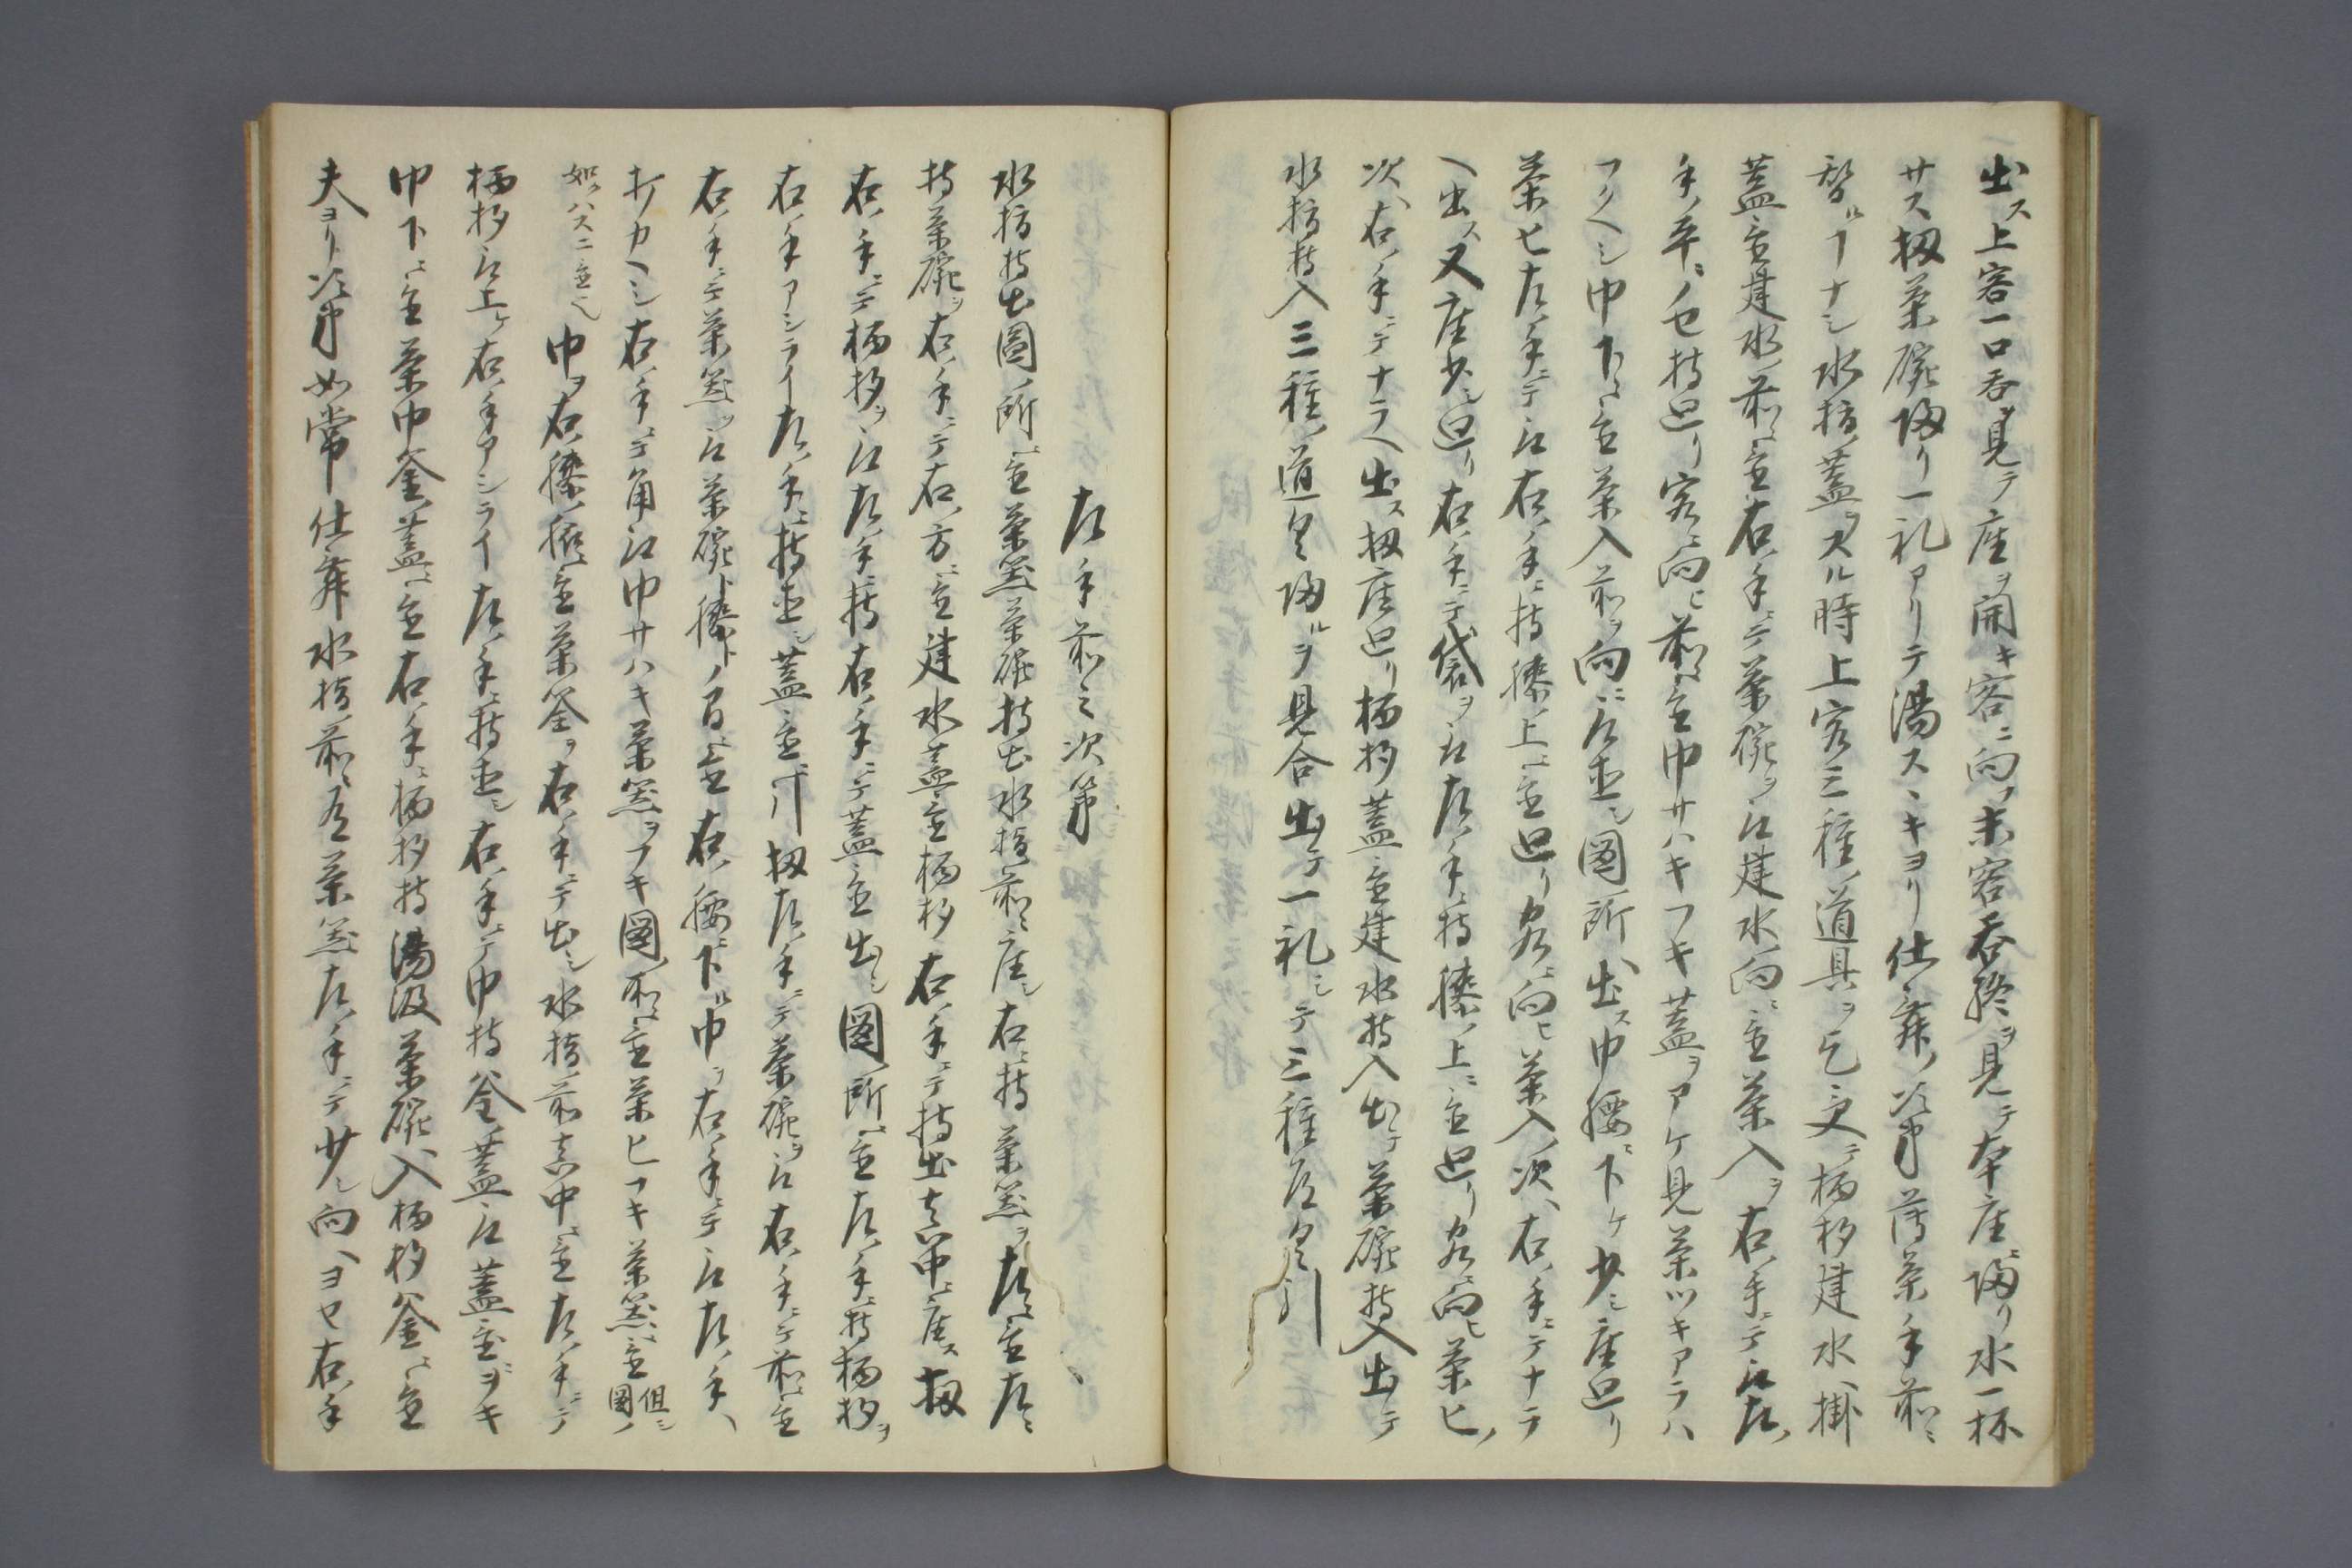 出ス上客一口呑ヲ見テ座ヲ開キ客ニ向ノ末客呑終ヲ見テ本座ニ帰リ水一杯
サス扨茶碗帰リ一礼アリテ湯スヽキヨリ仕舞ノ次第薄茶手前ニ
替ル丁ナシ水指ノ蓋ヲスル時上客三種ノ道具ヲ乞文テ柄杓建水ヘ掛
蓋置建水ノ前ニ置右ノ手ニテ茶碗ヲ取建水ノ向ニ置茶入ヲ右ノ手ニテ取左ノ
手ノ平ニノセ持廻リ客ニ向ヒ前ニ置巾サハキフキ蓋ヲアケ見茶ツキアラハ
フクヘシ巾下ニ置茶入前ヲ向ニ取直シ図ノ所ヘ出ス巾腰ニ下ケ少シ座廻リ
茶ヒ左ノ手ニテ取右ノ手ニ持膝ノ上ニ置廻リ客ニ向ヒ茶入ノ次ヘ右ノ手ニテナラ
ヘ出ス又座少シ廻リ右ノ手ニテ袋ヲ取左ノ手ニ持膝ノ上ニ置廻リ客ニ向ヒ茶ヒノ
次ヘ右ノ手ニテナラヘ出ス扨座廻リ柄杓蓋置建水持入出テ茶碗持入出テ
水指持入三種ノ道具帰ルヲ見合出テ一礼シテ三種道具引
左手前之次第
水指持出図ノ所ニ置茶筅茶碗持出水指前ニ座シ右ニ持茶筅ヲ左ニ置左ニ
持茶碗ヲ右ノ手ニテ右ノ方ニ置建水蓋置柄杓右ノ手ニテ持出真中ニ座ス扨
右ノ手ニテ柄杓ヲ取左ノ手ニ持右ノ手ニテ蓋置出シ図ノ所ニ置左ノ手ニ持柄杓ヲ
右ノ手アシライ左ノ手ニ持直シ蓋置ニ引扨左ノ手ニテ茶碗ヲ取右ノ手ニテ前ニ置
右ノ手ニテ茶筅ヲ取茶碗ト膝トノ間ニ置右ノ腰ニ下ル巾ヲ右ノ手ニテ取左ノ手ヘ
打カヘシ右ノ手ニテ角取巾サハキ茶筅ヲフキ図ノ所ニ置茶ヒフキ茶筅ニ置但シ図ノ
如クハスニ置ヘシ巾ヲ右ノ膝ノ脇ニ置茶筌ヲ右ノ手ニテ出シ水指ノ前真中ニ置左ノ手ニテ
柄杓取上ケ右ノ手アシライ左ノ手ニ持直シ右ノ手ニテ巾持釜ノ蓋取蓋置ヲキ
巾下ニ置茶巾釜ノ蓋ニ置右ノ手ニ柄杓持湯汲茶碗ヘ入柄杓釜ニ置
夫ヨリ次第如常仕舞水指前ニ有茶筅左ノ手ニテ少シ向ヘヨセ右ノ手